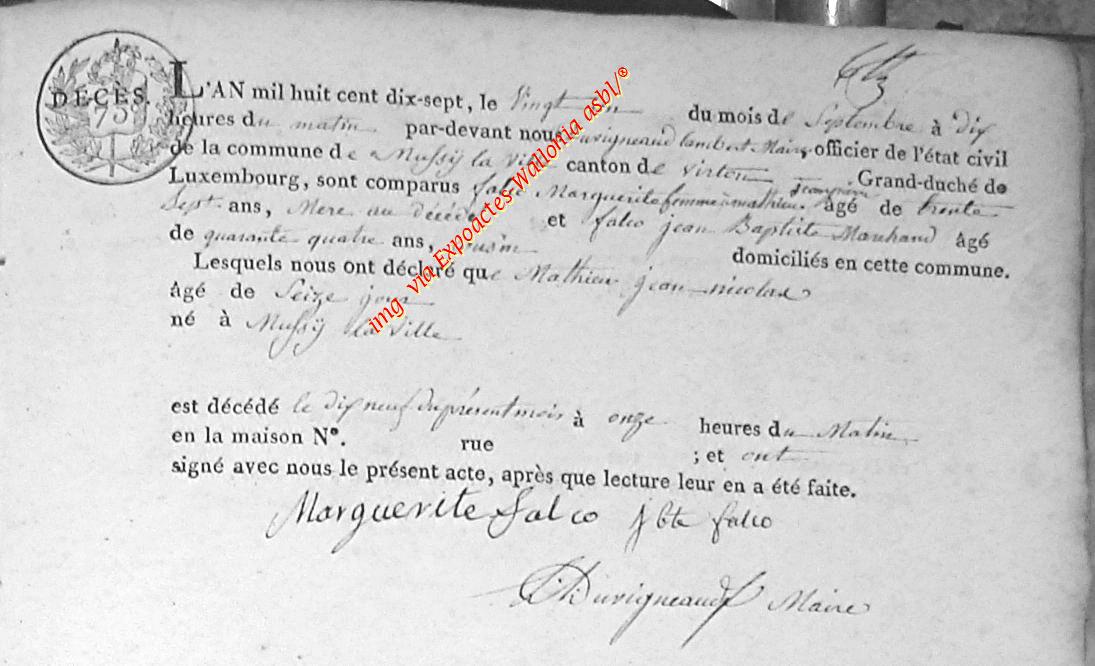 DÉCÈS.
75
L'AN mil huit cent dix-sept, le Vingt un du mois de Septembre à dix
heures du matin par-devant nous Duvigneaud lambert Maire, officier de l'état civil
de la commune de Mussÿ la Ville canton de virton Grand-duché de
Luxembourg, sont comparus falco Marguerite femme à mathieu âgé de trente
Sept ans, Mere au décédé et falco jean Baptiste Marchand âgé
de quarante quatre ans, Cousin domiciliés en cette commune.
Lesquels nous ont déclaré que Mathieu jean nicolas
âgé de Seize jours
né à Mussÿ la Ville
est décédé le dix neuf du présent mois à onze heures du Matin
en la maison N°. rue ; et ont
signé avec nous le présent acte, après que lecture leur en a été faite.
Marguerite falco jbte falco
Duvigneaud Maire
img via Expoactes Wallonia asbl/®